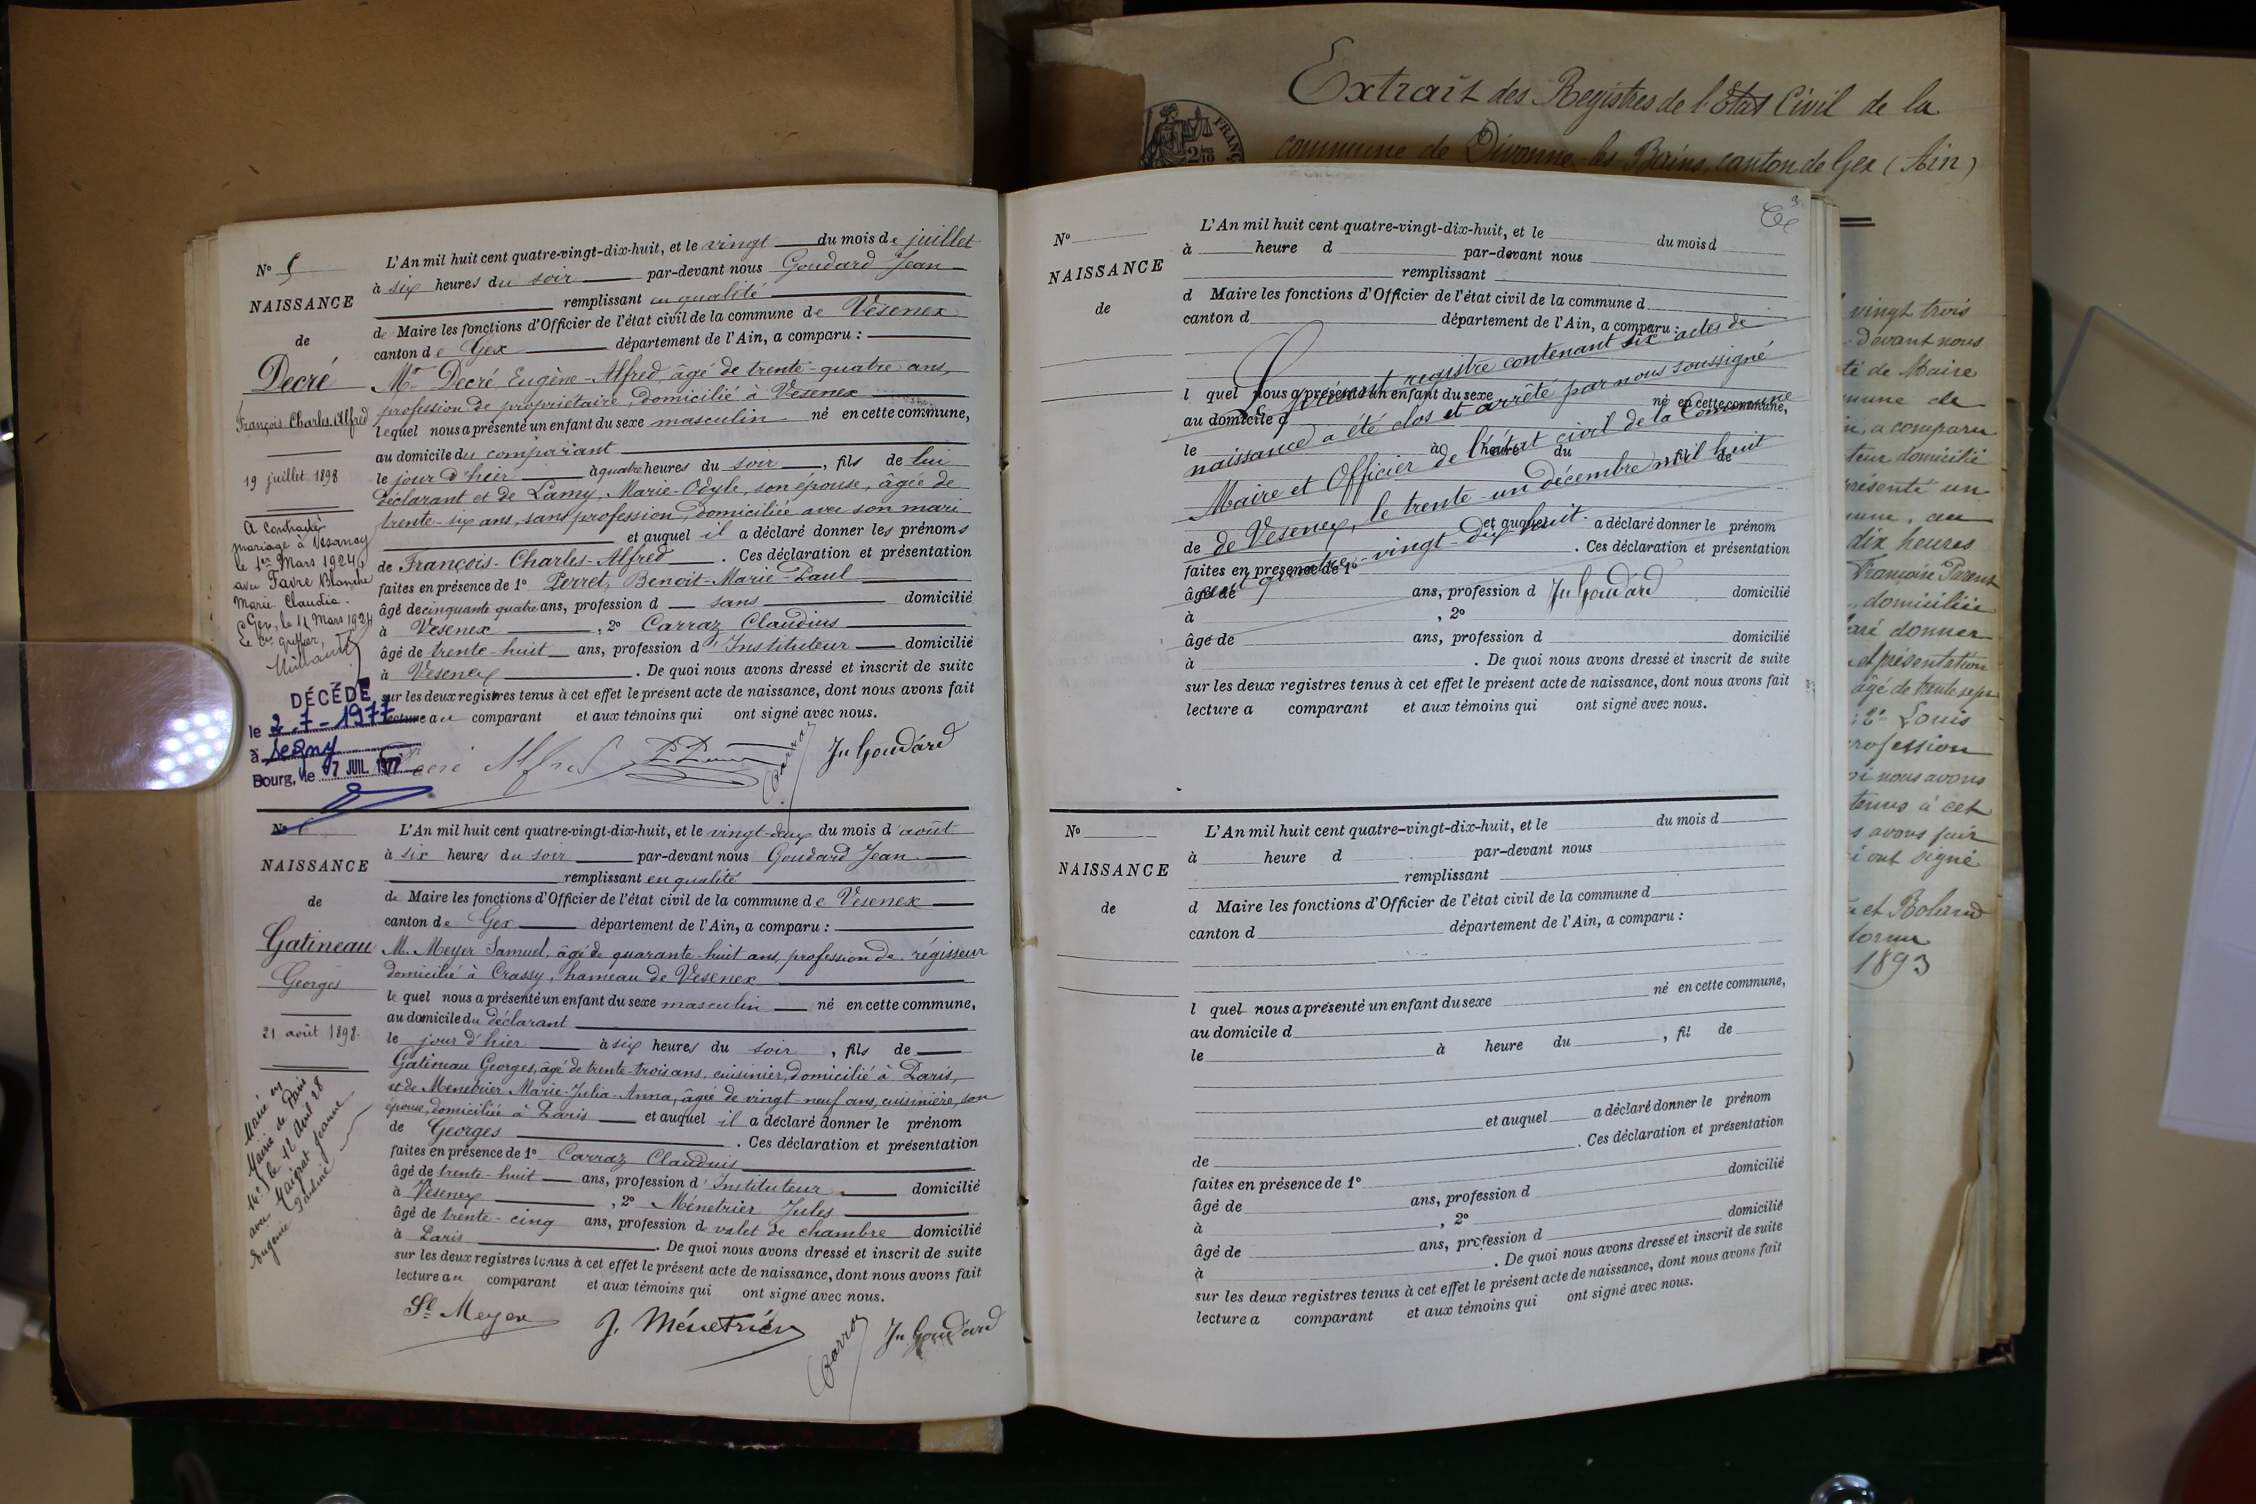 N° 5
NAISSANCE
de
Decré
François-Charles-Alfred
19 juillet 1898
A contracté
mariage à Vesancy
le 1er Mars 1924
avec Favre Blanche
Marie Claudia.
Gex, le 11 Mars 1924
Le greffier,
DÉCÉDÉ
le 2-7-1977
à Segny
Bourg, le 7 JUIL. 1977
L'An mil huit cent quatre-vingt-dix-huit, et le vingt du mois de juillet
à six heures du soir par-devant nous Goudard Jean
remplissant en qualité
de Maire les fonctions d'Officier de l'état civil de la commune de Vesenex
canton de Gex département de l'Ain, a comparu :
Mr Decré Eugène-Alfred, âgé de trente-quatre ans,
profession de propriétaire, domicilié à Vesenex
lequel nous a présenté un enfant du sexe masculin né en cette commune,
au domicile du comparant
le jour d'hier à quatre heures du soir, fils de lui
déclarant et de Lamy, Marie-Odyle, son épouse, âgée de
trente-six ans, sans profession, domiciliée avec son mari
et auquel il a déclaré donner les prénoms
de François-Charles-Alfred. Ces déclaration et présentation
faites en présence de 1° Perret, Benoit-Marie-Paul
âgé de cinquante quatre ans, profession d sans domicilié
à Vésenex, 2° Carraz Claudius
âgé de trente-huit ans, profession d'Instituteur domicilié
à Vesenex. De quoi nous avons dressé et inscrit de suite
sur les deux registres tenus à cet effet le présent acte de naissance, dont nous avons fait
lecture au comparant et aux témoins qui ont signé avec nous.
Decré Alfred Carraz Jn Goudard
N° 6
NAISSANCE
de
Gatineau
Georges
21 août 1898.
Marié en
Mairie de Paris
14e le 12 Avril 28
avec Maigrat Jeanne
Eugénie Pauline
L'An mil huit cent quatre-vingt-dix-huit, et le vingt-deux du mois d'août
à six heures du soir par-devant nous Goudard Jean
remplissant en qualité
de Maire les fonctions d'Officier de l'état civil de la commune de Vesenex
canton de Gex département de l'Ain, a comparu :
M. Meyer Samuel, âgé de quarante-huit ans, profession de régisseur
domicilié à Crassy, hameau de Vesenex
le quel nous a présenté un enfant du sexe masculin né en cette commune,
au domicile du déclarant
le jour d'hier à six heures du soir, fils de
Gatineau Georges, âgé de trente-trois ans, cuisinier, domicilié à Paris,
et de Menebrier Marie-Julia-Anna, âgée de vingt-neuf ans, cuisinière, son
épouse, domiciliée à Paris et auquel il a déclaré donner le prénom
de Georges. Ces déclaration et présentation
faites en présence de 1° Carraz Claudius
âgé de trente-huit ans, profession d'Instituteur domicilié
à Vesenex, 2° Ménebrier Jules
âgé de trente-cinq ans, profession de valet de chambre domicilié
à Paris. De quoi nous avons dressé et inscrit de suite
sur les deux registres tenus à cet effet le présent acte de naissance, dont nous avons fait
lecture au comparant et aux témoins qui ont signé avec nous.
Sl Meyer J. Ménetrier Carraz Jn Goudard
Extrait des Registres de l'Etat Civil de la
commune de Divonne-les-Bains, canton de Gex (Ain)
FRANÇ
3
N°
NAISSANCE
de
L'An mil huit cent quatre-vingt-dix-huit, et le du mois d
à heure d par-devant nous
remplissant
d Maire les fonctions d'Officier de l'état civil de la commune d
canton d département de l'Ain, a comparu :
Le présent registre contenant six actes de
l quel nous a présenté un enfant du sexe né en cette commune,
au domicile d
naissance a été clos et arrêté par nous soussigné
le à heure du fil de
Maire et Officier de l'état civil de la Commune
de Vesenex, le trente-un décembre mil huit
et auquel a déclaré donner le prénom
de . Ces déclaration et présentation
cent quatre-vingt-dix-huit.
faites en présence de 1°
âgé de ans, profession d Jn Goudard domicilié
à , 2°
âgé de ans, profession d domicilié
à . De quoi nous avons dressé et inscrit de suite
sur les deux registres tenus à cet effet le présent acte de naissance, dont nous avons fait
lecture a comparant et aux témoins qui ont signé avec nous.
N°
NAISSANCE
de
L'An mil huit cent quatre-vingt-dix-huit, et le du mois d
à heure d par-devant nous
remplissant
d Maire les fonctions d'Officier de l'état civil de la commune d
canton d département de l'Ain, a comparu :
l quel nous a présenté un enfant du sexe né en cette commune,
au domicile d
le à heure du , fil de
et auquel a déclaré donner le prénom
de . Ces déclaration et présentation
faites en présence de 1° domicilié
âgé de ans, profession d
à , 2°
âgé de ans, profession d domicilié
à . De quoi nous avons dressé et inscrit de suite
sur les deux registres tenus à cet effet le présent acte de naissance, dont nous avons fait
lecture a comparant et aux témoins qui ont signé avec nous.
vingt trois
devant nous
té de Maire
mune de
a comparu
teur domicilié
présenté un
mune, au
dix heures
Françoise Parent
domiciliée
laré donner
et présentation
âgé de trente sept
2° Louis
profession
oi nous avons
tenus à cet
s avons fait
i ont signé
et Roland
1893